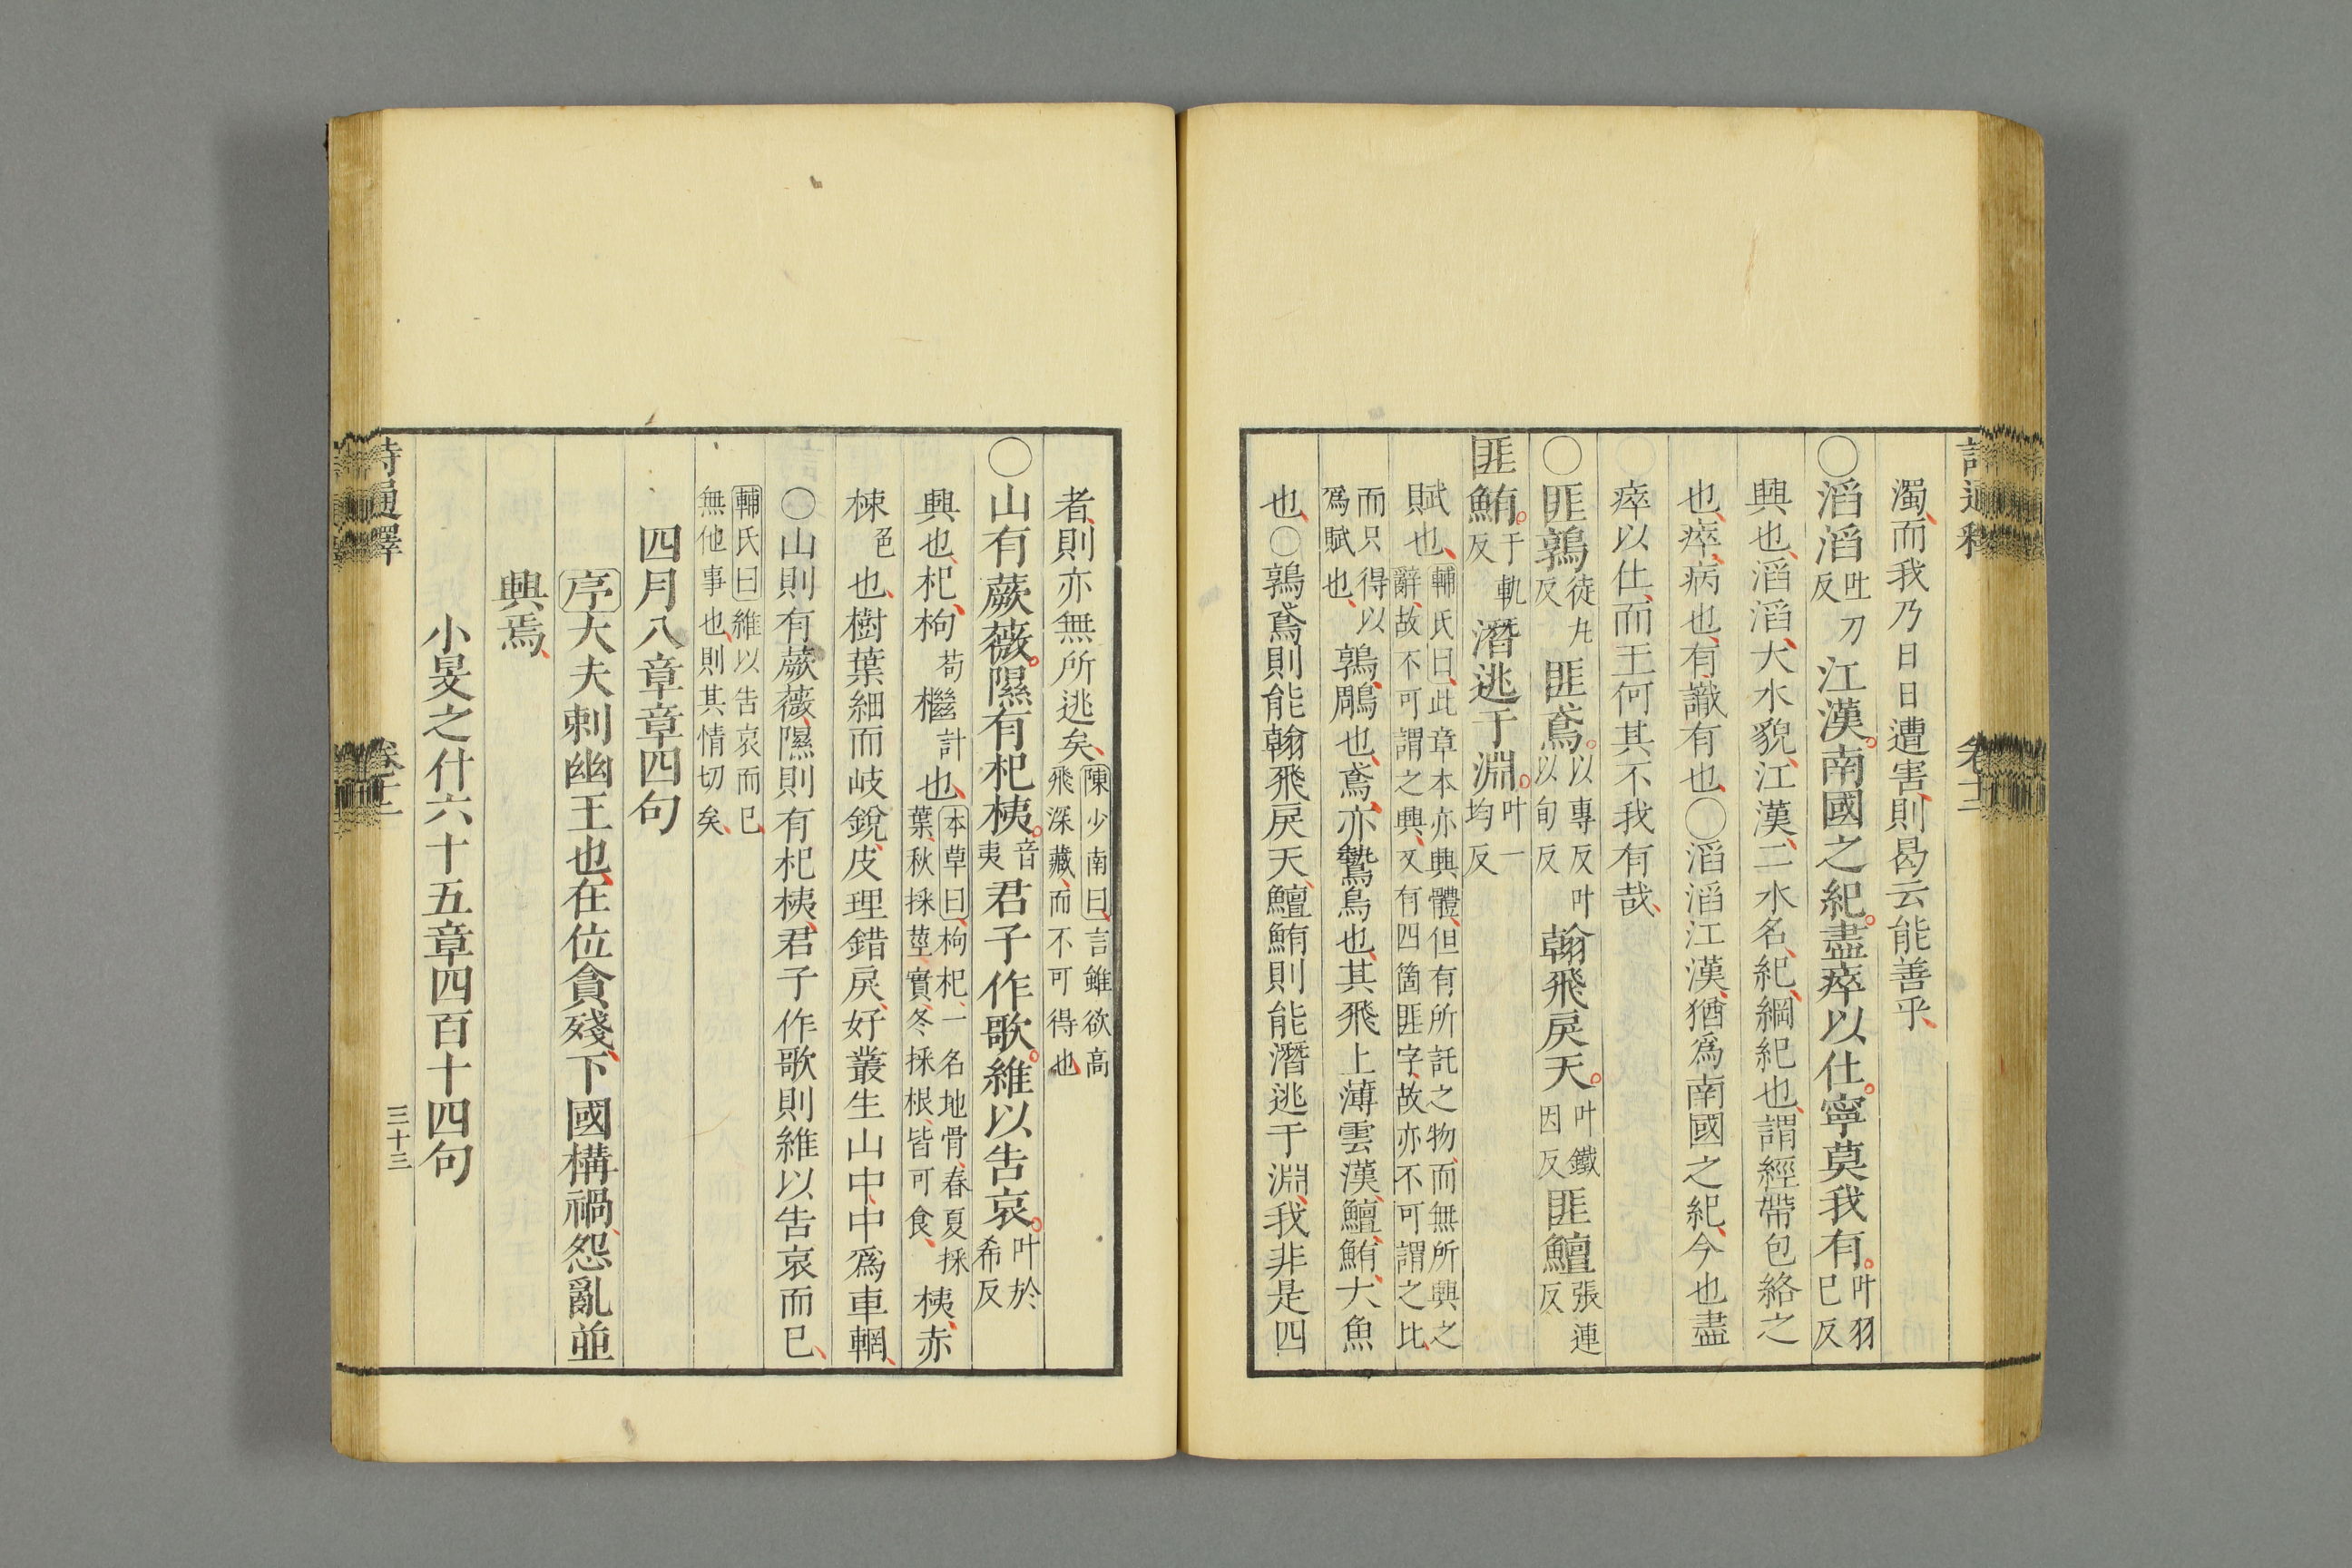 濁而我乃日日遭害則曷云能善乎
○滔滔吐刀反江漢南國之紀盡瘁以仕寧莫我有叶羽已反
興也滔滔大水貌江漢二水名紀綱紀也謂經帶包絡之
也瘁病也有識有也○滔滔江漢猶爲南國之紀今也盡
瘁以仕而王何其不我有哉
○匪鶉徒丸反匪鳶以專反叶以旬反翰飛戾天叶鐵因反匪鱣張連反
匪鮪于軌反潛逃于淵叶一均反
賦也輔氏曰此章本亦興體但有所託之物而無所興之辭故不可謂之興又有四箇匪字故亦不可謂之比
而只得以爲賦也鶉鵰也鳶亦鷙鳥也其飛上薄雲漢鱣鮪大魚
也○鶉鳶則能翰飛戾天鱣鮪則能潛逃于淵我非是四
者則亦無所逃矣陳少南曰言雖欲高飛深藏而不可得也
○山有蕨薇隰有杞桋音夷君子作歌維以告哀叶於希反
興也杞枸苟檵計也本草曰枸杞一名地骨春夏採葉秋採莖實冬採根皆可食桋赤
栜色也樹葉細而岐銳皮理錯戾好叢生山中中爲車輞
○山則有蕨薇隰則有杞桋君子作歌則維以告哀而已
輔氏曰維以告哀而已無他事也則其情切矣
四月八章章四句
序大夫刺幽王也在位貪殘下國構禍怨亂並
興焉
小旻之什六十五章四百十四句
三十三